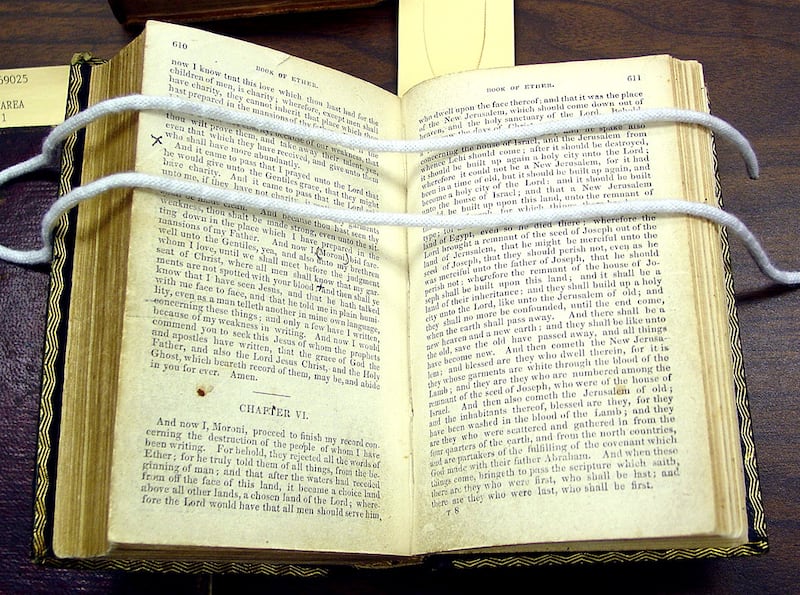 AREA
1
610
BOOK OF ETHER.
now I know that this love which thou hast had for the
children of men, is charity; wherefore, except men shall
have charity, they cannot inherit that place which thou
hast prepared in the mansions of thy
because of our weakness, that
thou wilt prove them, and take away
even that which they have received, and give unto them
who shall have more abundantly.
And it came to pass that I prayed unto the Lord that
he would give unto the Gentiles grace, that they might
have charity. And it came to pass that the Lord said
unto me, if they have not
clean. And because thou hast seen thy
weakness, thou shalt be made strong, even unto the sit-
ting down in the place which I have prepared in the
mansions of my Father. And now I (Moroni) bid fare-
well unto the Gentiles, yea, and also unto my brethren
whom I love, until we shall meet before the judgment
seat of Christ, where all men shall know that my gar-
ments are not spotted with your blood; and then shall ye
know that I have seen Jesus, and that he hath talked
with me face to face, and that he told me in plain humi-
lity, even as a man telleth another in mine own language,
concerning these things; and only a few have I written,
because of my weakness in writing. And now I would
commend you to seek this Jesus of whom the prophets
and apostles have written, that the grace of God the
Father, and also the Lord Jesus Christ, and the Holy
Ghost, which beareth record of them, may be, and abide
in you for ever. Amen.
CHAPTER VI.
And now I, Moroni, proceed to finish my record con-
cerning the destruction of the people of whom I have
been writing. For behold, they rejected all the words of
Ether; for he truly told them of all things, from the be-
ginning of man; and that after the waters had receded
from off the face of this land, it became a choice land
above all other lands, a chosen land of the Lord; where-
fore the Lord would have that all men should serve him,
BOOK OF ETHER.
611
who dwell upon the face thereof; and that it was the place
of the New Jerusalem, which should come down out of
heaven, and the holy sanctuary of the Lord. Behold,
the days of Christ, spake also
concerning the house of Israel, and the Jerusalem from
whence Lehi should come; after it should be destroyed,
it should be built up again a holy city unto the Lord;
wherefore it could not be a New Jerusalem, for it had
been in a time of old, but it should be built up again, and
become a holy city of the Lord; and it should be built
unto the house of Israel; and that a New Jerusalem
should be built up upon this land, unto the remnant of
of Egypt, even so he died there; wherefore the
Lord brought a remnant of the seed of Joseph out of the
land of Jerusalem, that he might be merciful unto the
seed of Joseph, that they should perish not, even as he
was merciful unto the father of Joseph, that he should
perish not; wherefore the remnant of the house of Jo-
seph shall be built upon this land; and it shall be a
land of their inheritance; and they shall build up a holy
city unto the Lord, like unto the Jerusalem of old; and
they shall no more be confounded, until the end come,
when the earth shall pass away. And there shall be a
new heaven and a new earth; and they shall be like unto
the old, save the old have passed away, and all things
have become new. And then cometh the New Jerusa-
lem; and blessed are they who dwell therein, for it is
they whose garments are white through the blood of the
Lamb; and they are they who are numbered among the
remnant of the seed of Joseph, who were of the house of
Israel. And then also cometh the Jerusalem of old;
and the inhabitants thereof, blessed are they, for they
have been washed in the blood of the Lamb; and they
are they who were scattered and gathered in from the
four quarters of the earth, and from the north countries,
and are partakers of the fulfilling of the covenant which
God made with their father Abraham. And when these
things come, bringeth to pass the scripture which saith,
there are they who were first, who shall be last; and
there are they who were last, who shall be first.